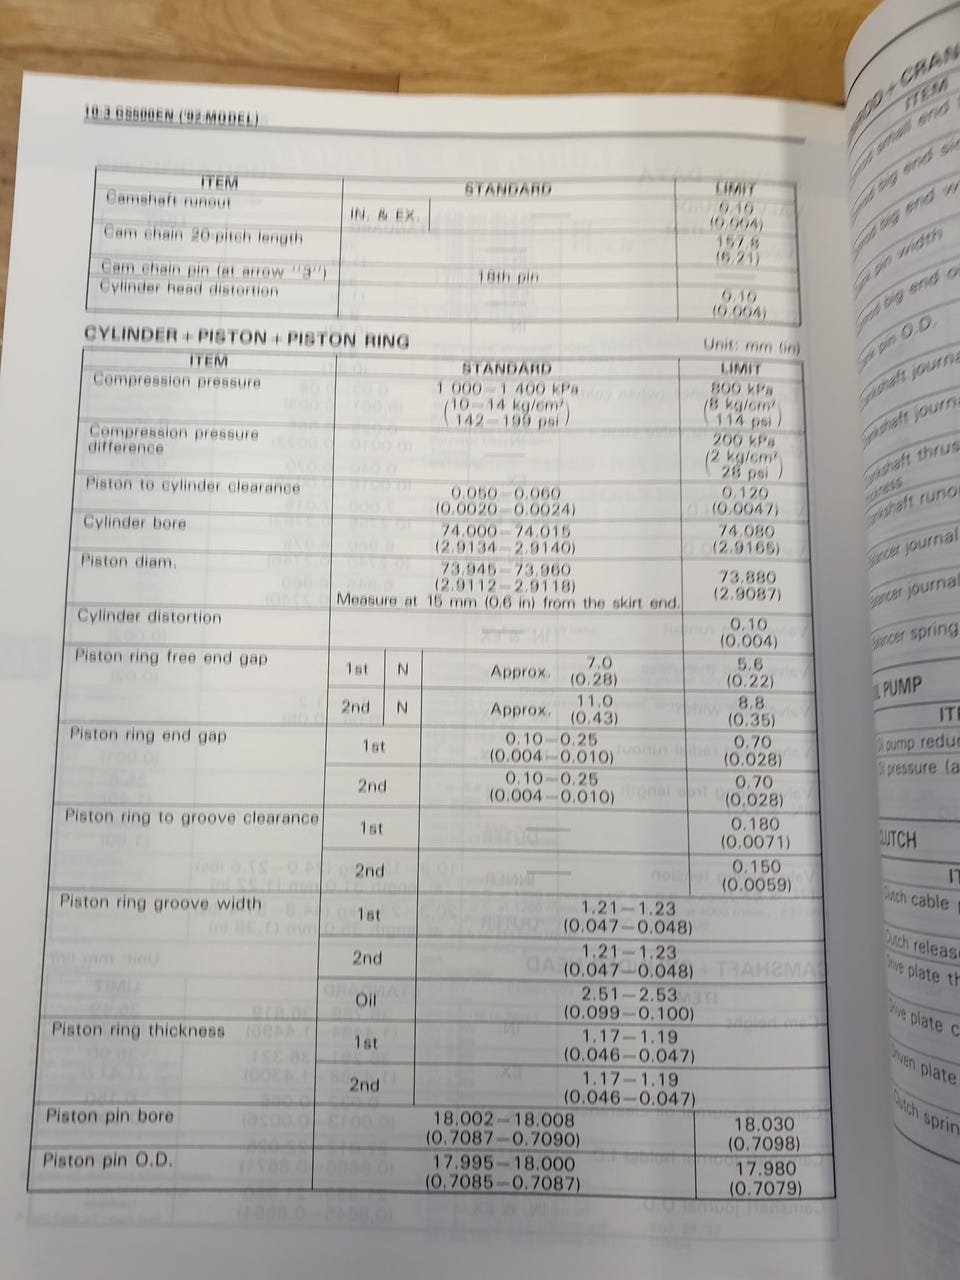 10-3 GS500EN ('92 MODEL)
ITEM STANDARD LIMIT
Camshaft runout IN. & EX. 0.10
(0.004)
Cam chain 20-pitch length 157.8
(6.21)
Cam chain pin (at arrow "3") 16th pin
Cylinder head distortion 0.10
(0.004)
CYLINDER + PISTON + PISTON RING Unit: mm (in)
ITEM STANDARD LIMIT
Compression pressure 1 000 – 1 400 kPa 800 kPa
(10 – 14 kg/cm² (8 kg/cm²
142 – 199 psi) 114 psi)
Compression pressure 200 kPa
difference (2 kg/cm²
28 psi)
Piston to cylinder clearance 0.050 – 0.060 0.120
(0.0020 – 0.0024) (0.0047)
Cylinder bore 74.000 – 74.015 74.080
(2.9134 – 2.9140) (2.9165)
Piston diam. 73.945 – 73.960 73.880
(2.9112 – 2.9118) (2.9087)
Measure at 15 mm (0.6 in) from the skirt end.
Cylinder distortion 0.10
(0.004)
Piston ring free end gap 1st N Approx. 7.0 5.6
(0.28) (0.22)
2nd N Approx. 11.0 8.8
(0.43) (0.35)
Piston ring end gap 1st 0.10 – 0.25 0.70
(0.004 – 0.010) (0.028)
2nd 0.10 – 0.25 0.70
(0.004 – 0.010) (0.028)
Piston ring to groove clearance 1st —— 0.180
(0.0071)
2nd —— 0.150
(0.0059)
Piston ring groove width 1st 1.21 – 1.23
(0.047 – 0.048)
2nd 1.21 – 1.23
(0.047 – 0.048)
Oil 2.51 – 2.53
(0.099 – 0.100)
Piston ring thickness 1st 1.17 – 1.19
(0.046 – 0.047)
2nd 1.17 – 1.19
(0.046 – 0.047)
Piston pin bore 18.002 – 18.008 18.030
(0.7087 – 0.7090) (0.7098)
Piston pin O.D. 17.995 – 18.000 17.980
(0.7085 – 0.7087) (0.7079)
ITEM
small end
big end
big end
pin width
big end
pin O.D.
journal
thrust
runout
journal
journal
spring
PUMP
pump
pressure
CLUTCH
Clutch cable
Clutch release
Drive plate
Drive plate
Driven plate
Clutch spring